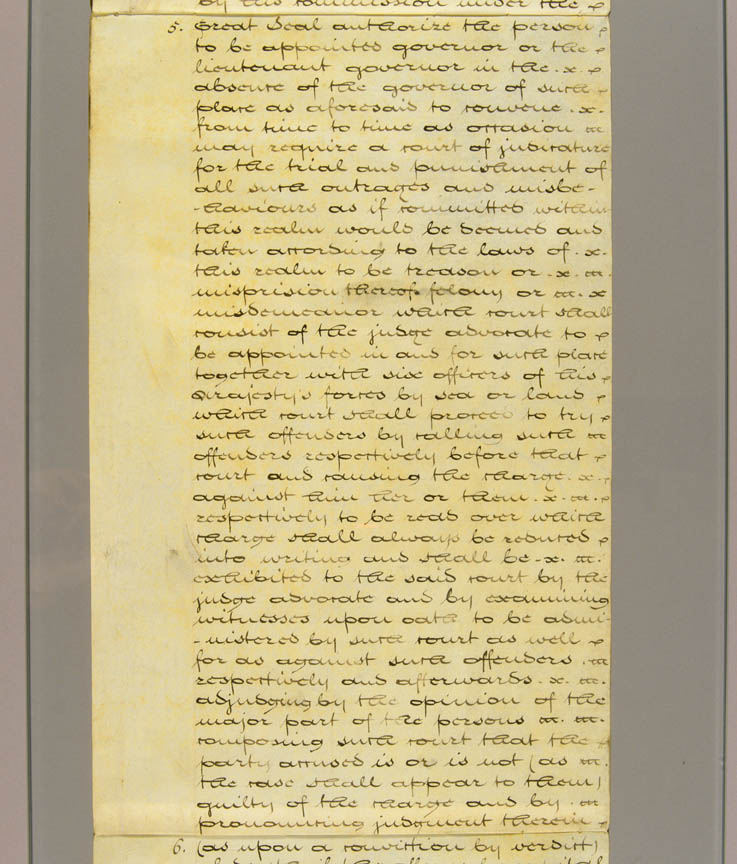 by his commission under the
5. Great Seal authorize the person
to be appointed governor or the
lieutenant governor in the . x .
absence of the governor of such
place as aforesaid to convene . x .
from time to time as occasion
may require a court of judicature
for the trial and punishment of
all such outrages and misbe-
-haviours as if committed within
this realm would be deemed and
taken according to the laws of . x .
this realm to be treason or . x .
misprision thereof felony or . x
misdemeanor which court shall
consist of the judge advocate to
be appointed in and for such place
together with six officers of his
Majesty's forces by sea or land
which court shall proceed to try
such offenders by calling such
offenders respectively before that
court and causing the charge . x .
against him her or them . x .
respectively to be read over which
charge shall always be reduced
into writing and shall be - x .
exhibited to the said court by the
judge advocate and by examining
witnesses upon oath to be admi-
-nistered by such court as well
for as against such offenders .
respectively and afterwards . x .
adjudging by the opinion of the
major part of the persons
composing such court that the
party accused is or is not (as
the case shall appear to them)
guilty of the charge and by .
pronouncing judgment therein
6. (as upon a conviction by verdict)